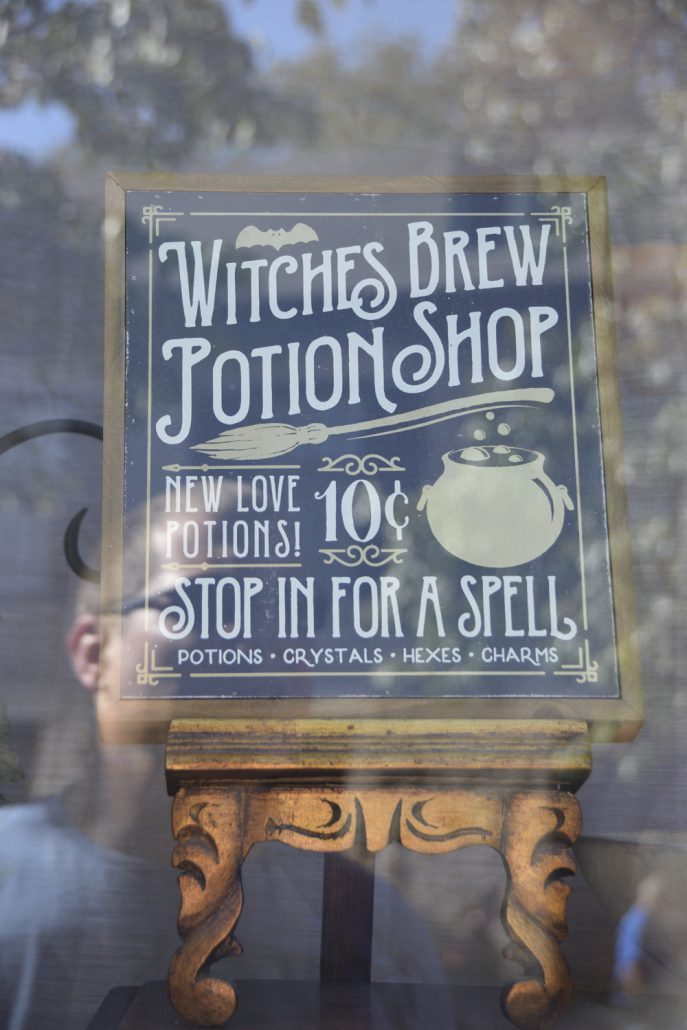 Witches Brew
Potion Shop
New Love 10¢
Potions!
Stop in for a Spell
Potions • Crystals • Hexes • Charms